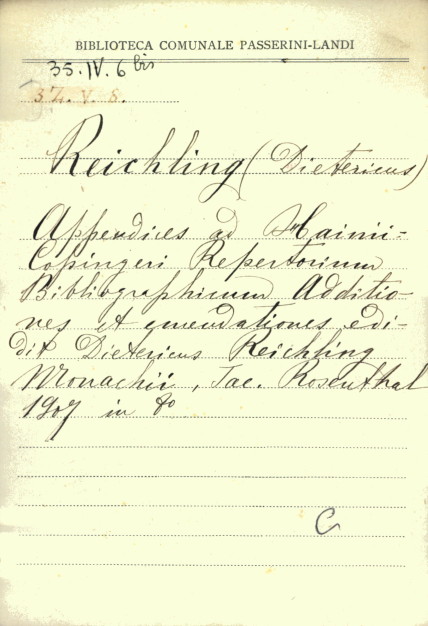 BIBLIOTECA COMUNALE PASSERINI-LANDI
35.IV.6 bis
37.V.8.
Reichling (Dietericus)
Appendices ad Hainii-
Copingeri Repertorium
Bibliographicum Additio-
nes et emendationes edi-
dit Dietericus Reichling
Monachii, Jac. Rosenthal
1907 in 8º
C